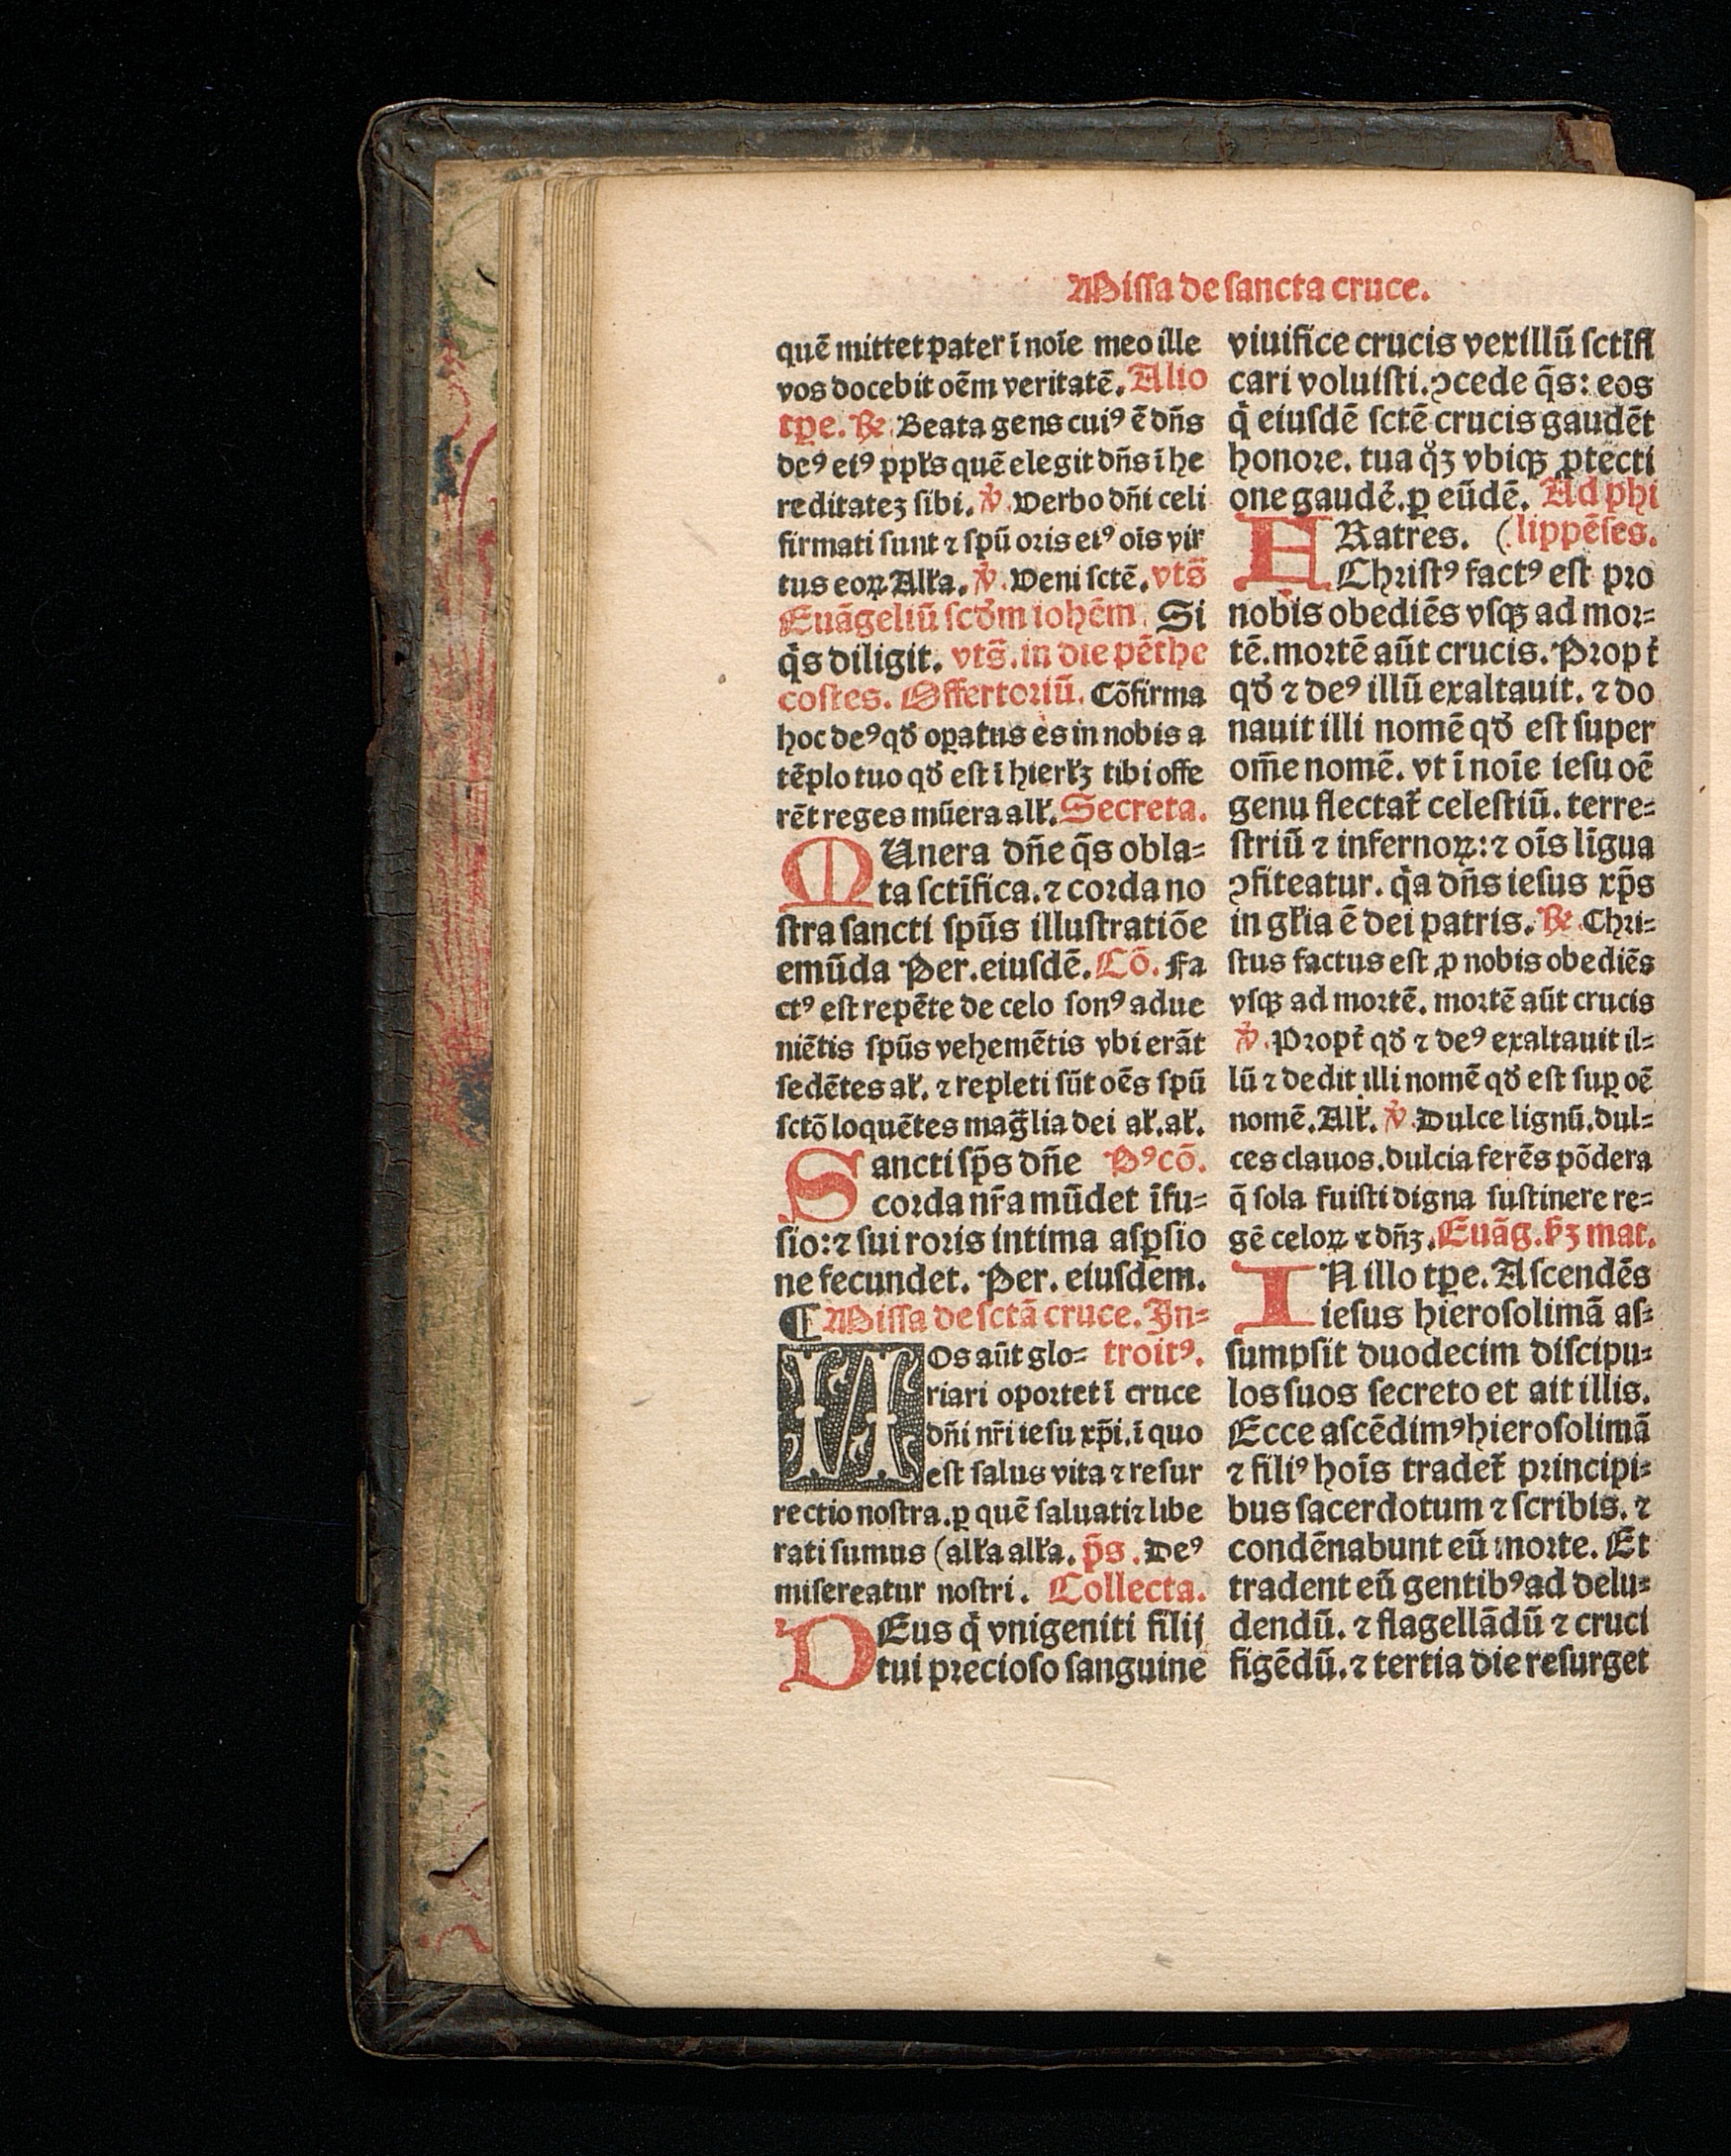 Missa de sancta cruce.
quē mittet pater ī noīe meo ille
vos docebit oēm veritatē. Alio
tꝑe. ℞. Beata gens cuiꝰ ē dn̄s
deꝰ eiꝰ ppl̓s quē elegit dn̄s ī he
reditatez sibi. ℣. Verbo dn̄i celi
firmati sunt ⁊ spū oris eiꝰ oīs vir
tus eoꝝ All̓a. ℣. Veni sctē. vts̄
Euāgeliū scd̓m iohēm. Si
q̇s diligit. vts̄. in die pēthe
costes. Offertoriū. Cōfirma
hoc deꝰ qd̓ oꝑatus es in nobis a
tēplo tuo qd̓ est ī hierl̓ꝫ tibi offe
rēt reges mūera all̓. Secreta.
MUnera dn̄e q̄s obla⸗
ta sctīfica. ⁊ corda no
stra sancti spūs illustratiōe
emūda Per. eiusdē. Cō. Fa
ctꝰ est repēte de celo sonꝰ adue
niētis spūs vehemētis vbi erāt
sedētes al̓. ⁊ repleti sūt oēs spū
sctō loquētes mag̅lia dei al̓. al̓.
Sancti sp̄s dn̄e Pꝰcō.
corda nr̄a mūdet īfu⸗
sio: ⁊ sui roris intima aspꝑsio
ne fecundet. Per. eiusdem.
¶ Missa de sctā cruce. In⸗
NOs aūt glo⸗ troitꝰ.
riari oportet ī cruce
dn̄i nr̄i iesu xp̄i. ī quo
est salus vita ⁊ resur
rectio nostra. ꝑ quē saluati ⁊ libe
rati sumus (all̓a all̓a. p̄s. Deꝰ
misereatur nostri. Collecta.
DEus q̇ vnigeniti filij
tui precioso sanguine
viuifice crucis vexillū sctīfi
cari voluisti. ꝯcede q̄s: eos
q̇ eiusdē sctē crucis gaudēt
honore. tua qͦꝫ vbiqꝫ ꝓtecti
one gaudē. ꝑ eūdē. Ad phi
FRatres. (lippēses.
Christꝰ factꝰ est pro
nobis obediēs vsqꝫ ad mor⸗
tē. mortē aūt crucis. Propt̓
qd̓ ⁊ deꝰ illū exaltauit. ⁊ do
nauit illi nomē qd̓ est super
om̄e nomē. vt ī noīe iesu oē
genu flectat̓ celestiū. terre⸗
striū ⁊ infernoꝝ: ⁊ oīs līgua
ꝯfiteatur. q̇a dn̄s iesus xp̄s
in gl̓ia ē dei patris. ℞. Chri⸗
stus factus est ꝓ nobis obediēs
vsqꝫ ad mortē. mortē aūt crucis
℣. Propt̓ qd̓ ⁊ deꝰ exaltauit il⸗
lū ⁊ dedit illi nomē qd̓ est suꝑ oē
nomē. All̓. ℣. Dulce lignū. dul⸗
ces clauos. dulcia ferēs pōdera
q̄ sola fuisti digna sustinere re⸗
gē celoꝝ ⁊ dn̄ꝫ. Euāg. ẜꝫ mat.
IN illo tꝑe. Ascendēs
iesus hierosolimā as⸗
sumpsit duodecim discipu⸗
los suos secreto et ait illis.
Ecce ascēdimꝰ hierosolimā
⁊ filiꝰ hoīs tradet̓ principi⸗
bus sacerdotum ⁊ scribis. ⁊
condēnabunt eū morte. Et
tradent eū gentibꝰ ad delu⸗
dendū. ⁊ flagellādū ⁊ cruci
figēdū. ⁊ tertia die resurget